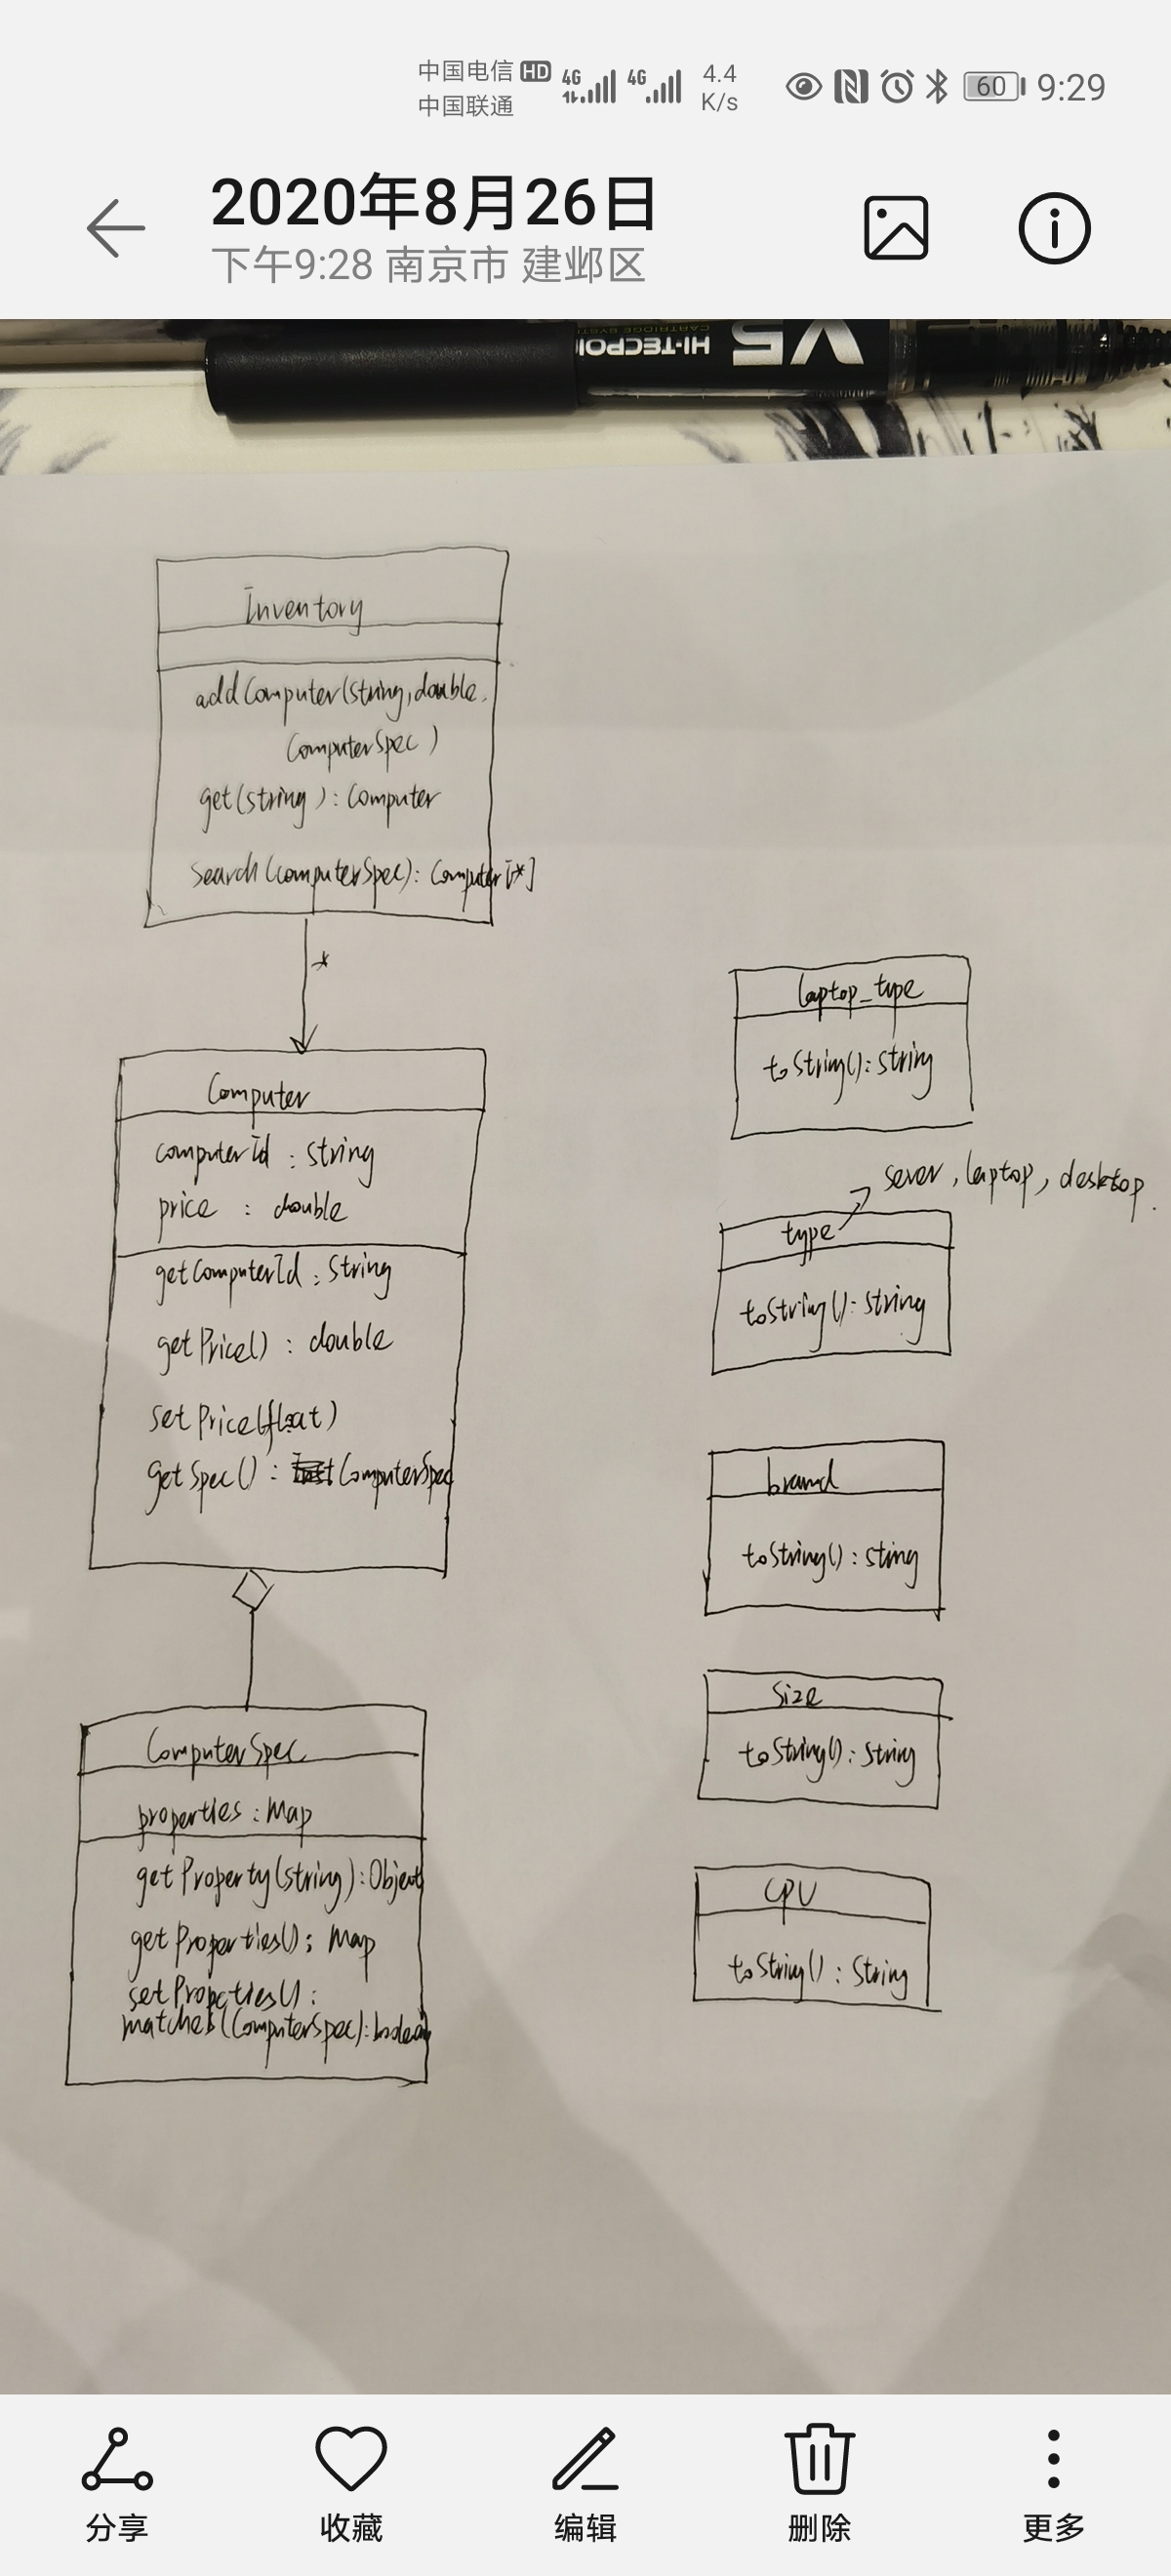 中国电信 HD 4G 4G 4.4 60 9:29
中国联通 K/s
2020年8月26日
下午9:28 南京市 建邺区
V5
HI-TECPOI
CARTRIDGE SYST
Inventory
addComputer(String,double,
ComputerSpec)
get(string):Computer
Search(computerSpec):Computer[*]
*
Computer
computerId : String
price : double
getComputerId : String
getPrice() : double
setPrice(float)
getSpec() : ComputerSpec
ComputerSpec
properties : Map
getProperty(string):Object
getProperties() : Map
setProperties() :
matches(ComputerSpec):boolean
laptop_type
toString():String
sever, laptop, desktop.
type
toString():String
brand
toString():sting
Size
toString():String
CPU
toString():String
分享
收藏
编辑
删除
更多